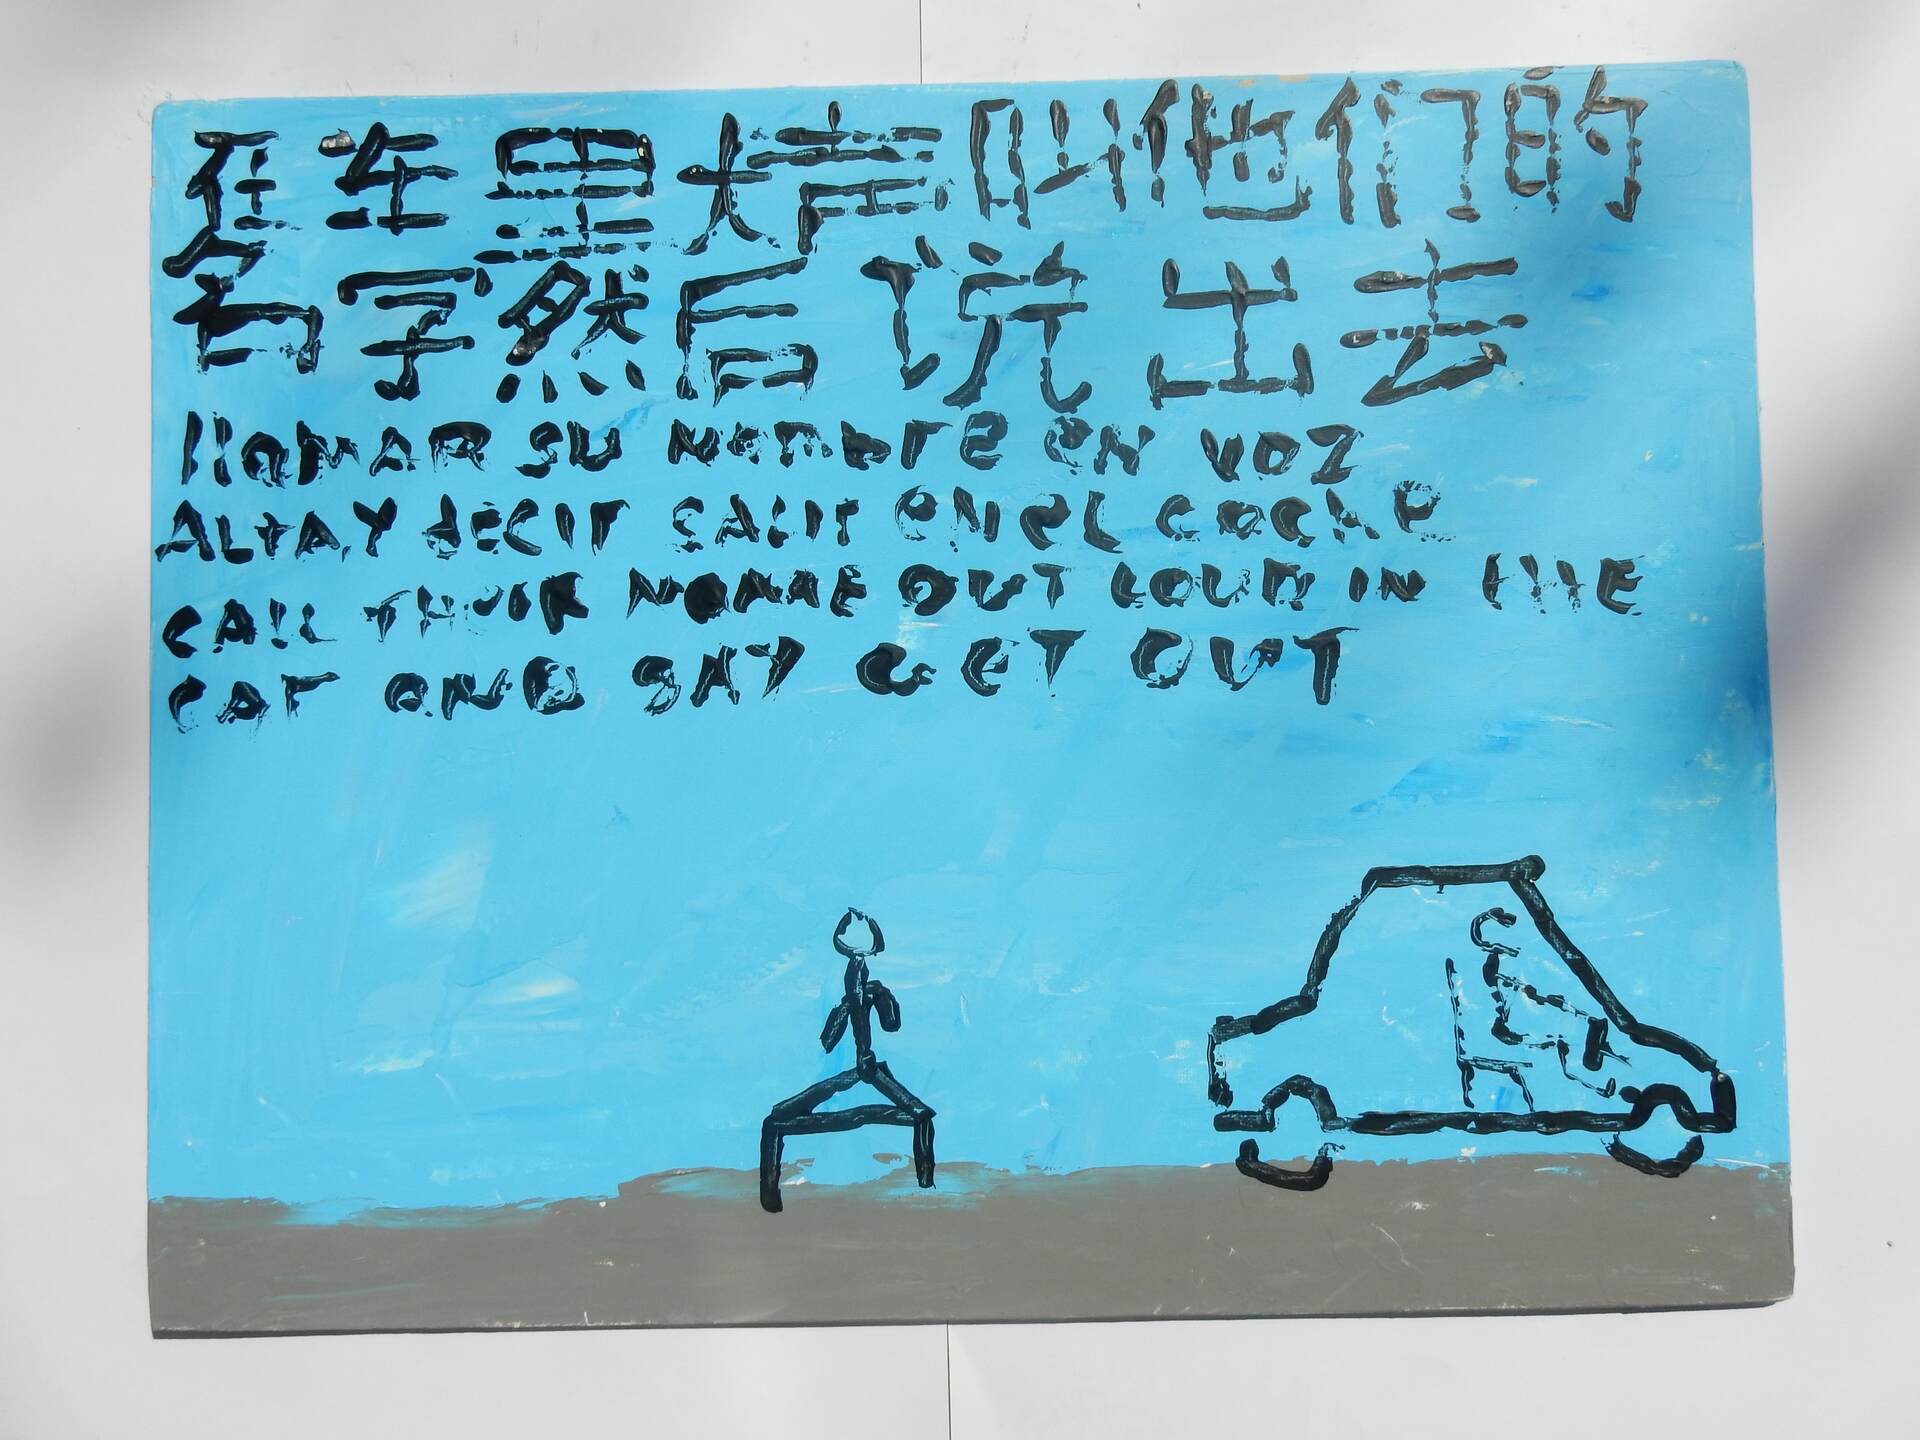 在车里大声叫他们的
名字然后说出去
llaMAR SU NOMbre EN VOZ
ALtA Y dECIr SALIr EN EL COChE
CALL THEIR NAME OUT LOUD IN THE
CAr AND SAY GET OUT